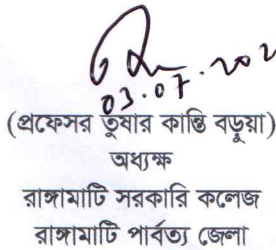 03.07.202
(প্রফেসর তুষার কান্তি বড়ুয়া)
অধ্যক্ষ
রাঙ্গামাটি সরকারি কলেজ
রাঙ্গামাটি পার্বত্য জেলা